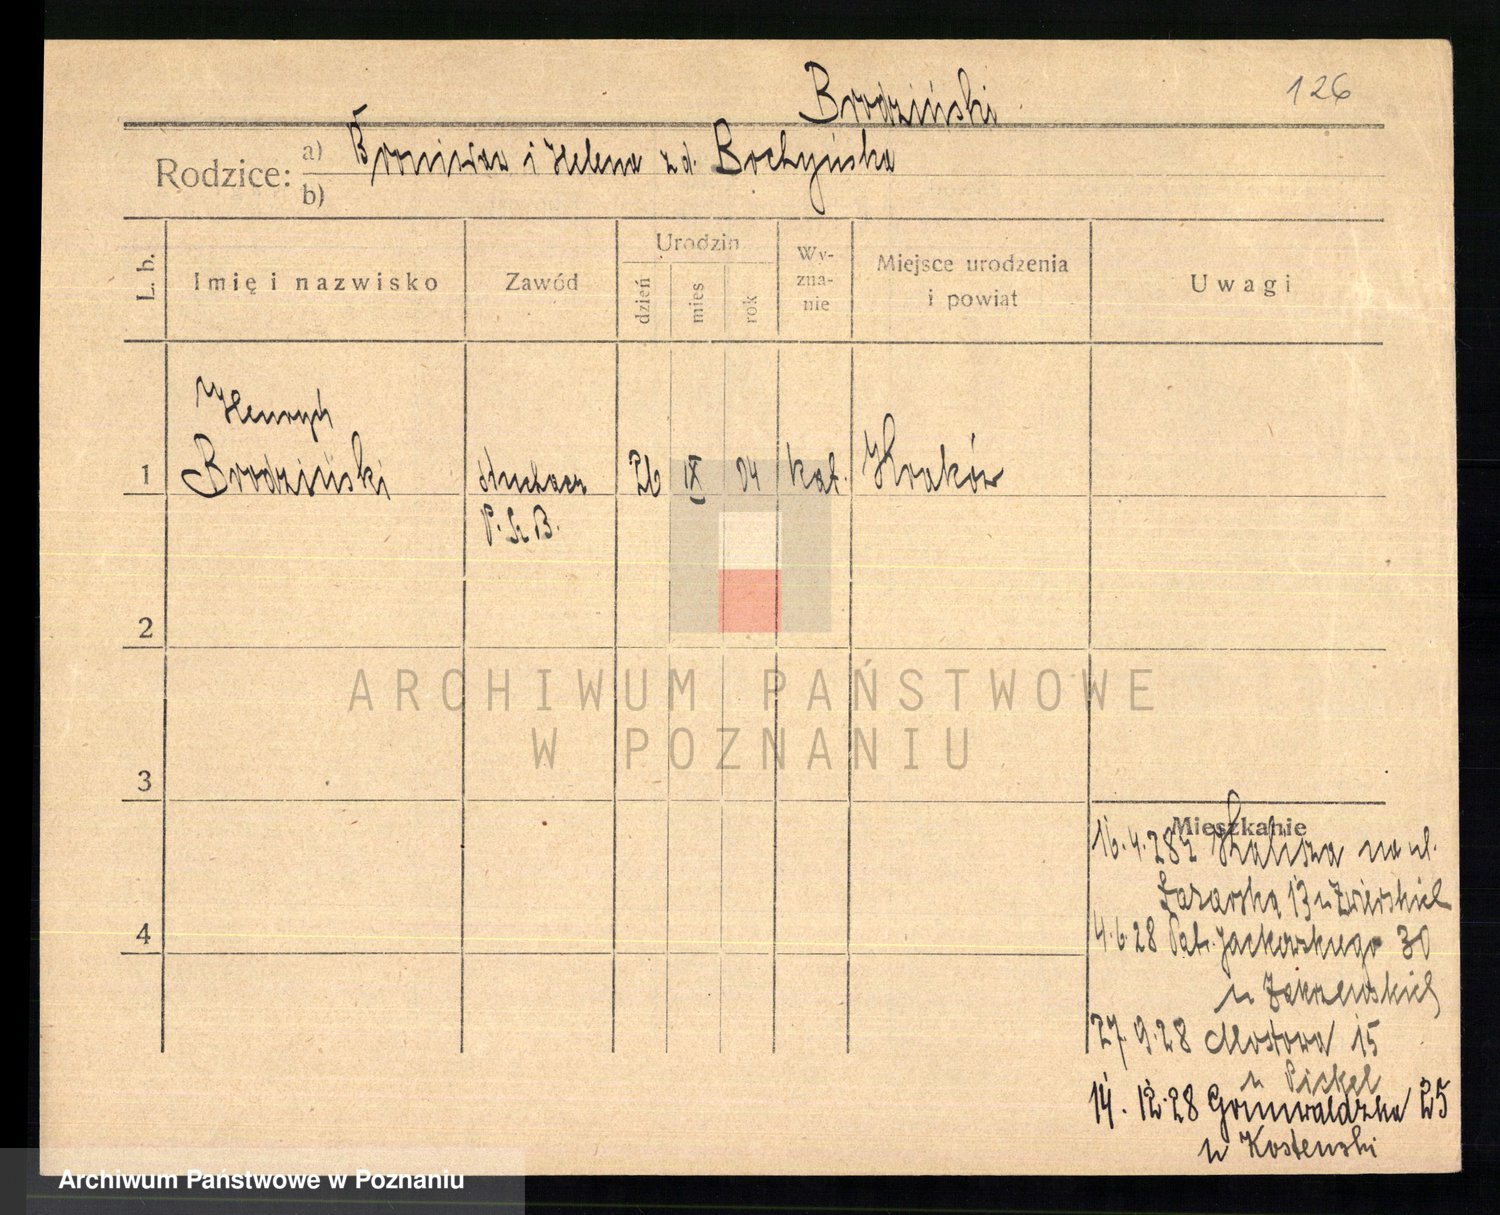 126
Brodziński
Rodzice: a) Bronisław i Helena z d. Bochyńska
b)
L. b.
Imię i nazwisko
Zawód
Urodzin
dzień
mies
rok
Wy-
zna-
nie
Miejsce urodzenia
i powiat
Uwagi
Henryk
1 Brodziński słuchacz 26 IX 04 kat. Kraków
P. S. B.
2
3
4
Mieszkanie
16.4.28 z Kalisza na ul.
Łazarska 13 u Zwierskich
4.6.28 Patr. Jackowskiego 30
u Zakrzewskich
27.9.28 Mostowa 15
u Pickel
14.12.28 Grunwaldzka 25
u Kostenski
ARCHIWUM PAŃSTWOWE
W POZNANIU
Archiwum Państwowe w Poznaniu